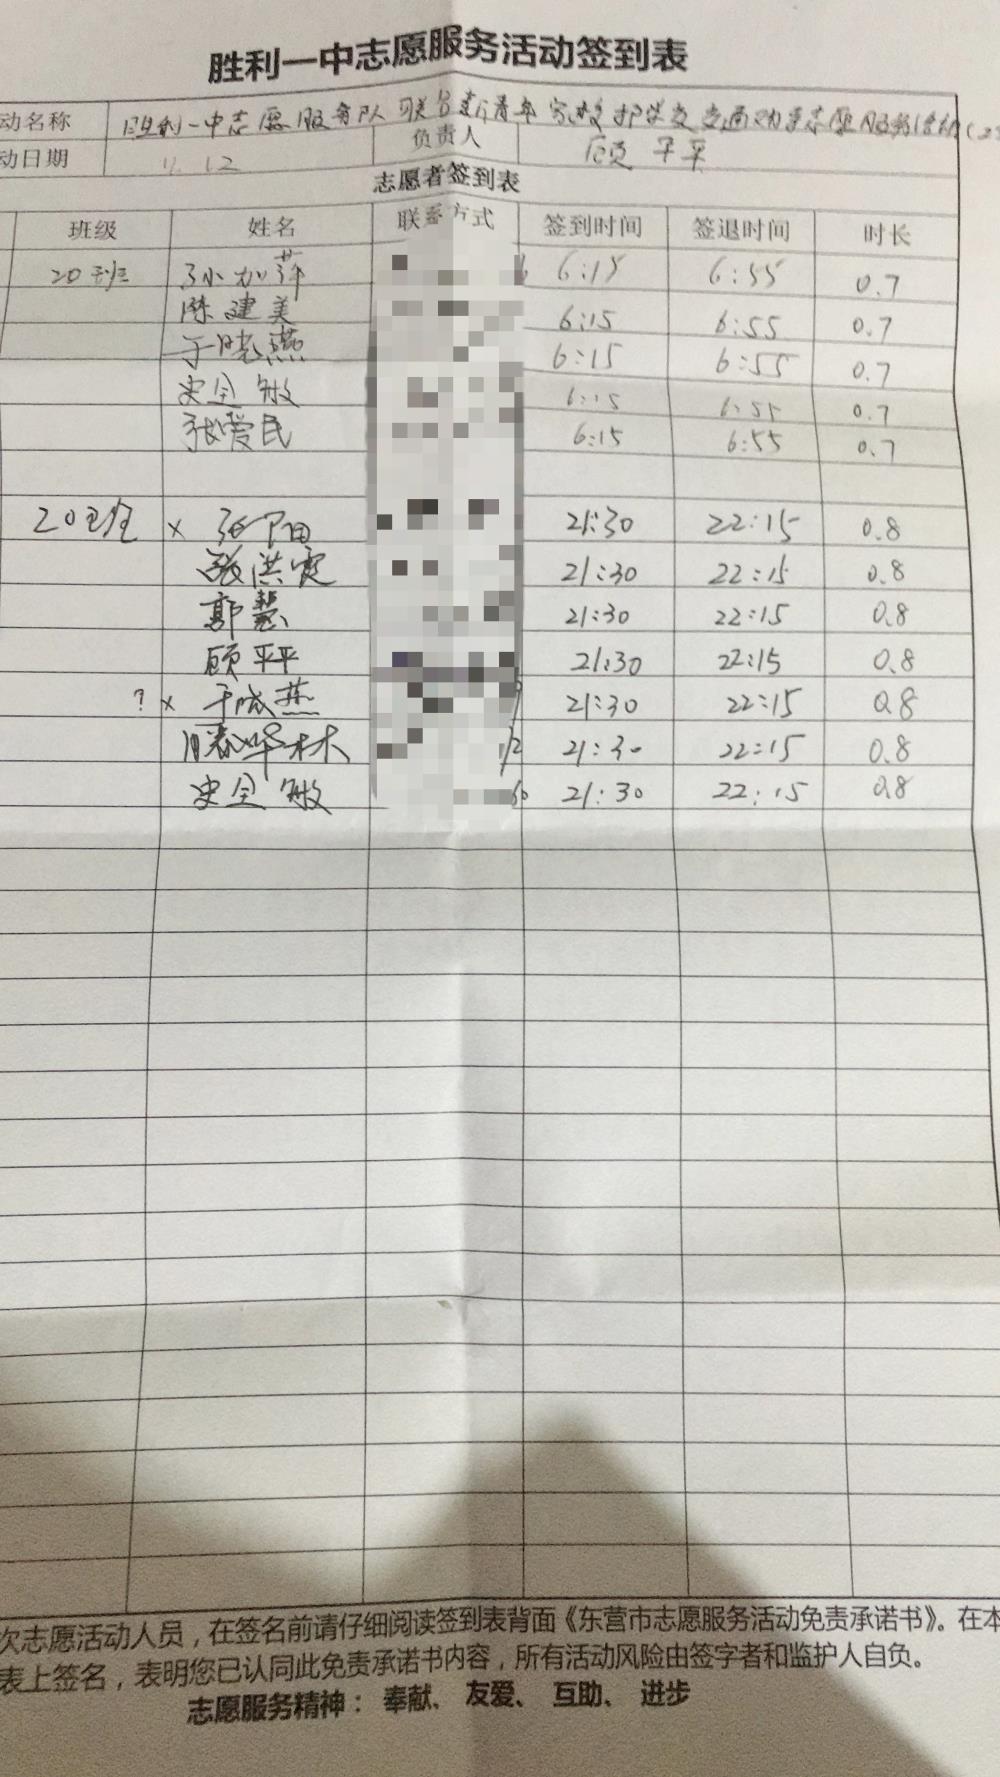 胜利一中志愿服务活动签到表
动名称 胜利一中志愿服务队联合新青年家校护学交通劝导志愿服务活动
动日期 11.12 负责人 顾平平
志愿者签到表
班级 姓名 联系方式 签到时间 签退时间 时长
20班 孙加萍 6:15 6:55 0.7
陈建美 6:15 6:55 0.7
于晓燕 6:15 6:55 0.7
史全敏 6:15 6:55 0.7
张爱民 6:15 6:55 0.7
20班 × 21:30 22:15 0.8
张洪霞 21:30 22:15 0.8
郭慧 21:30 22:15 0.8
顾平平 21:30 22:15 0.8
? × 于咸燕 21:30 22:15 0.8
滕烨林 21:30 22:15 0.8
史全敏 21:30 22:15 0.8
次志愿活动人员，在签名前请仔细阅读签到表背面《东营市志愿服务活动免责承诺书》。在本
表上签名，表明您已认同此免责承诺书内容，所有活动风险由签字者和监护人自负。
志愿服务精神： 奉献、 友爱、 互助、 进步